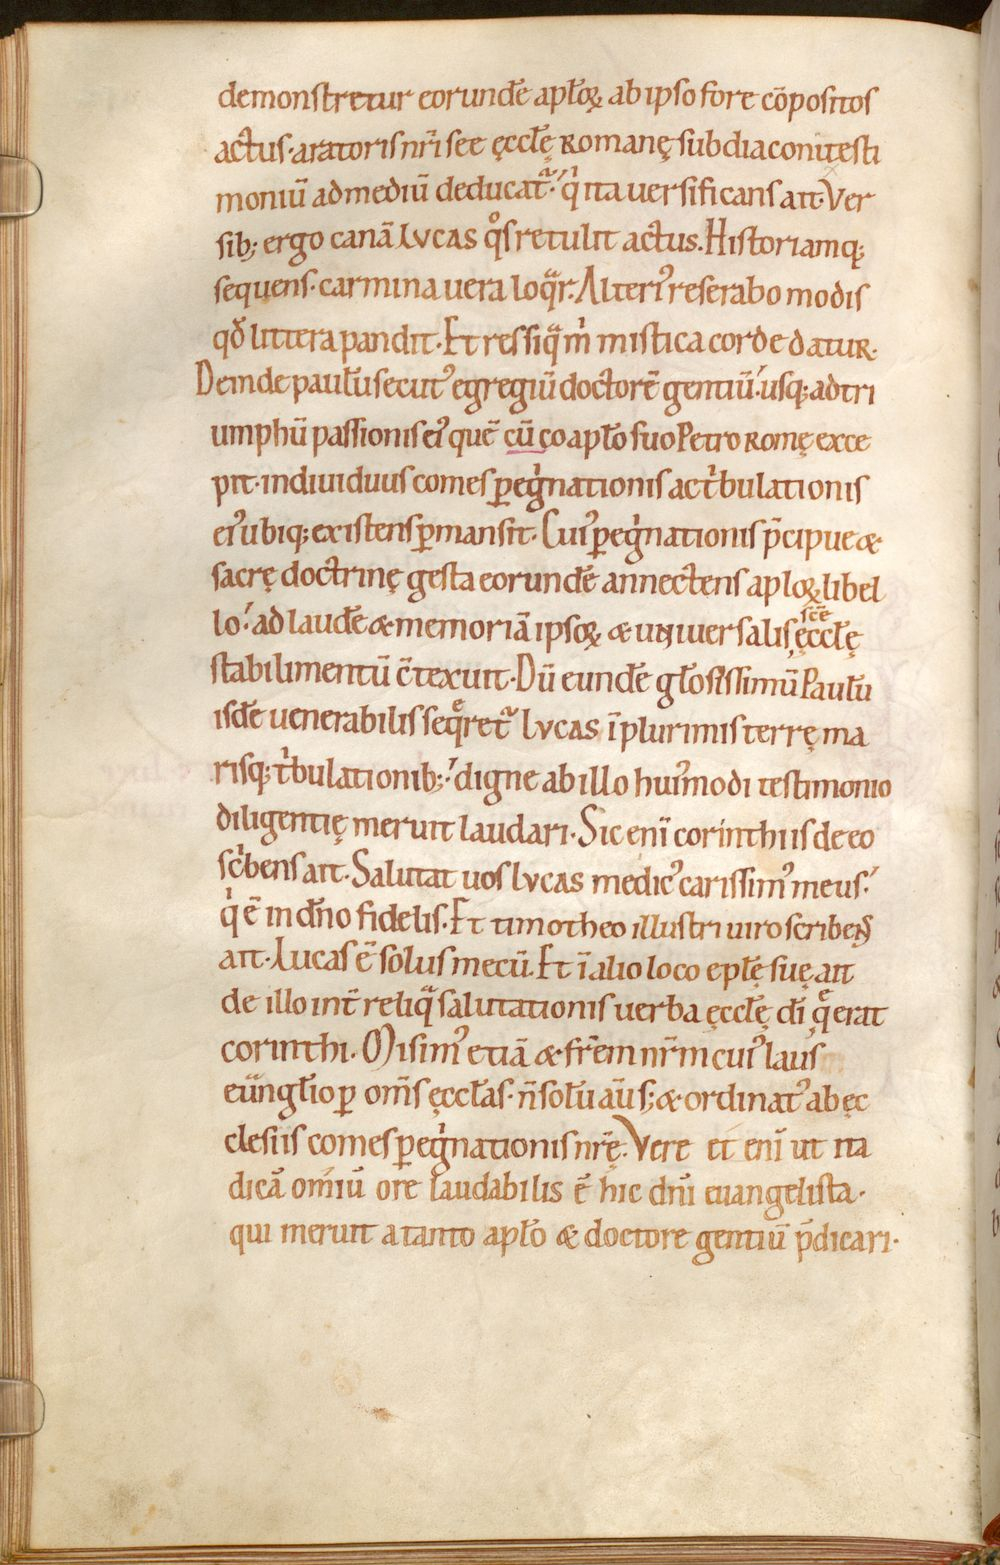 demonstretur eorundē apƚoꝝ ab ipso fore cōpositos
actus · aratoris nr̄i scē ęccƚę Romanę subdiaconi testi
moniū ad mediū deducat᷑ · qⁱ ita uersificans ait · Ver
sib; ergo canā LVCAS qͦs retulit actus. Historiamq;
sequens · carmina uera loqͣr. Alteriꝰ reserabo modis
qđ littera pandit · Et res siqͣ m̉ mistica corde datur.
Deinde pauƚu secutꝰ egregiū doctorē gentiū · usq; ad tri
umphū passionis eiꝰ quē cū coapƚo suo Petro Romę exce
pit · indiuiduus comes ꝑegⁱnationis ac tⁱbulationis
eiꝰ ubiq; existens ꝑmansit · Cuiꝰ ꝑegⁱnationis p̄cipue &
sacrę doctrinę gesta eorundē annectens aploꝝ libel
lo · ad laudē & memoriā ipsoꝝ & uniuersalis scē ęccƚę
stabilimentū c̄texuit · Dū eundē gƚosissimū Pauƚu
isdē uenerabilis seqͤret᷑ LVCAS ī plurimis terrę ma
risq; tⁱbulationib; · digne ab illo huiꝰmodi testimonio
diligentię meruit laudari · Sic enī corinthiis de eo
scⁱbens ait · Salutat uos LVCAS medicꝰ carissimꝰ meus ·
qⁱ ē in dn̄o fidelis · Et timotheo illustri uiro scribens
ait · Lucas ē solus mecū. Et ī alio loco epƚę suę ait
de illo int̄ reliqͣ salutationis uerba ęccƚę dī qͤ erat
corinthi. Misimꝰ etiā & fr̄em nr̄m cuiꝰ laus
eūngƚio ꝑ om̄s ęccƚas · n̄ soƚu aūs; & ordinatꝰ ab ęc
clesiis comes ꝑegⁱnationis nr̄ę. Vere et enī ut ita
dicā om̄iū ore laudabilis ē hic dn̄i euangelista ·
qui meruit a tanto apƚo & doctore gentiū p̄dicari ·